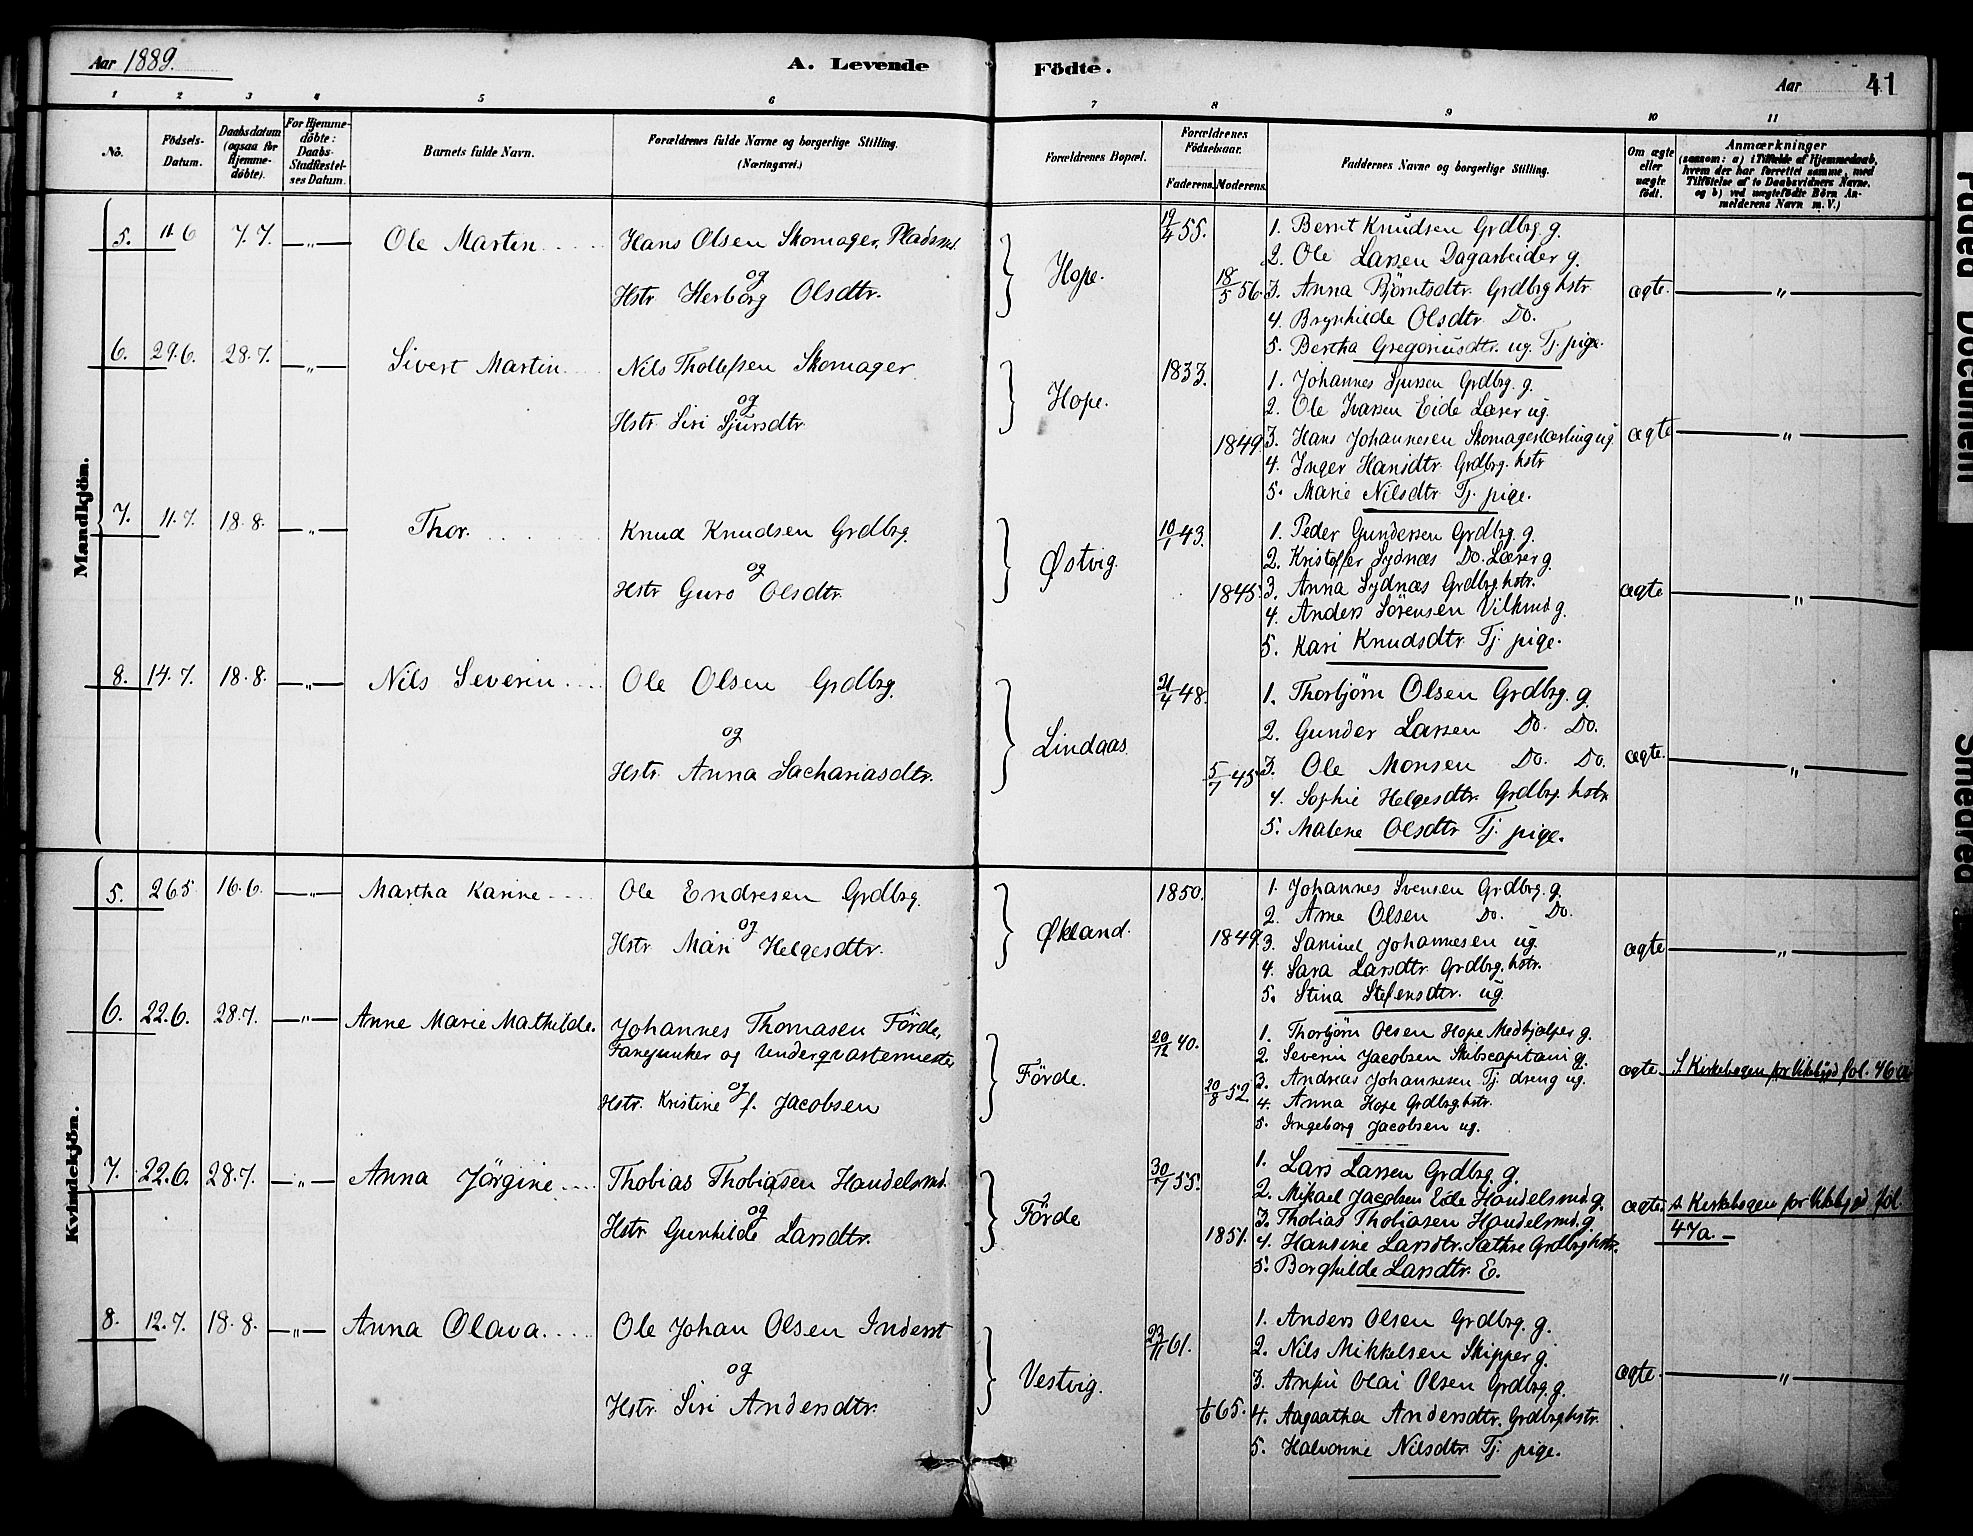 Aar 1889.
A. Levende Födte.
Aar 41
1 2 3 4 5 6 7 8 9 10 11
No.
Födsels-Datum.
Daabsdatum (ogsaa for Hjemme-döbte).
For Hjemme-döbte: Daabs-Stadfæstel-ses Datum.
Barnets fulde Navn.
Forældrenes fulde Navne og borgerlige Stilling. (Næringsvei.)
Forældrenes Bopæl.
Forældrenes Födselsaar.
Faderens. Moderens.
Faddernes Navne og borgerlige Stilling.
Om ægte eller uægte födt.
Anmærkninger
(saasom: a) i Tilfælde af Hjemmedaab, hvem der har forrettet samme, med Tilföielse af to Daabsvidners Navne, og b) ved uægtefödte Börn An-melderens Navn m. V.)
Mandkjön.
5. 11.6 7.7. —"— Ole Martin
Hans Olsen Skomager, Pladsmd.
og
Hstr Herborg Olsdtr.
Hope.
19/4 55.
18/5 56.
1. Bernt Knudsen Grdbrg. g.
2. Ole Larsen Dagarbeider g.
3. Anna Björntsdtr. Grdbrg hstr
4. Brynhilde Olsdtr Do.
5. Bertha Gregoriusdtr. ug. Tj. pige.
ægte. —"—
6. 29.6. 28.7. —"— Sivert Martin
Nils Thollefsen Skomager
og
Hstr Siri Sjursdtr.
Hope.
1833.
1849.
1. Johannes Sjursen Grdbrg. g.
2. Ole Ivarsen Eide Lærer ug.
3. Hans Johannesen Skomagerlærling ug
4. Inger Hansdtr. Grdbrg. hstr
5. Marie Nilsdtr Tj. pige.
ægte —"—
7. 11.7. 18.8. —"— Thor.
Knud Knudsen Grdbrg.
og
Hstr Guro Olsdtr.
Østvig.
10/1 43.
1845.
1. Peder Gundersen Grdbrg. g.
2. Kristoffer Sydnæs Do. Lærer g.
3. Anna Sydnæs Grdbrg hstr.
4. Anders Sörensen g.
5. Kari Knudsdtr. Tj. pige.
ægte —"—
8. 14.7. 18.8. —"— Nils Severin
Ole Olsen Grdbrg.
og
Hstr. Anna Sachariasdtr.
Lindaas.
4 48.
5/7 45.
1. Thorbjörn Olsen Grdbrg. g.
2. Gunder Larsen Do. Do.
3. Ole Monsen Do. Do.
4. Sophie Helgesdtr. Grdbrg. hstr
5. Malene Olsdtr Tj. pige.
ægte. —"—
Kvindekjön.
5. 26.5 16.6. —"— Martha Karine
Ole Endresen Grdbrg.
og
Hstr Mari Helgesdtr.
Økland.
1850.
1849.
1. Johannes Svensen Grdbrg. g.
2. Arne Olsen Do. Do.
3. Samuel Johannesen ug.
4. Sara Larsdtr Grdbrg. hstr.
5. Stina Stefensdtr. ug.
ægte —"—
6. 22.6. 28.7. —"— Anne Marie Mathilde.
Johannes Thomasen Förde,
Fanejunker og Underqvartermester
og
Hstr. Kristine f. Jacobsen
Förde.
20/12 40.
20/8 52.
1. Thorbjörn Olsen Hope Medhjælper g.
2. Severin Jacobsen Skibscapitain g.
3. Andreas Johannesen Tj. dreng ug.
4. Anna Hope Grdbrg hstr.
5. Ingeborg Jacobsen ug.
ægte S Kirkebogen for Vikebygd fol. 46 a
7. 22.6. 28.7. —"— Anna Jörgine
Thobias Thobiasen Handelsmd.
og
Hstr Gunhilde Larsdtr.
Förde
30/7 55.
1851.
1. Lars Larsen Grdbrg. g.
2. Mikael Jacobsen Eide Handelsmd. g.
3. Thobias Thobiasen Handelsmd. g.
4. Hansine Larsdtr. Sæthre Grdbrg hstr.
5. Borghilde Larsdtr. E.
ægte. s Kirkebogen for Vikebygd. fol.
47a.
8. 12.7. 18.8. —"— Anna Olava.
Ole Johan Olsen Inderst
og
Hstr. Siri Andersdtr.
Vestvig.
23/11 61.
65.
1. Anders Olsen Grdbrg. g.
2. Nils Mikkelsen Skipper g.
3. Olai Olsen Grdbrg. g.
4. Aagaatha Andersdtr. Grdbrg hstr.
5. Halvorine Nilsdtr Tj. pige.
ægte. —"—
Faded Document
Smeared